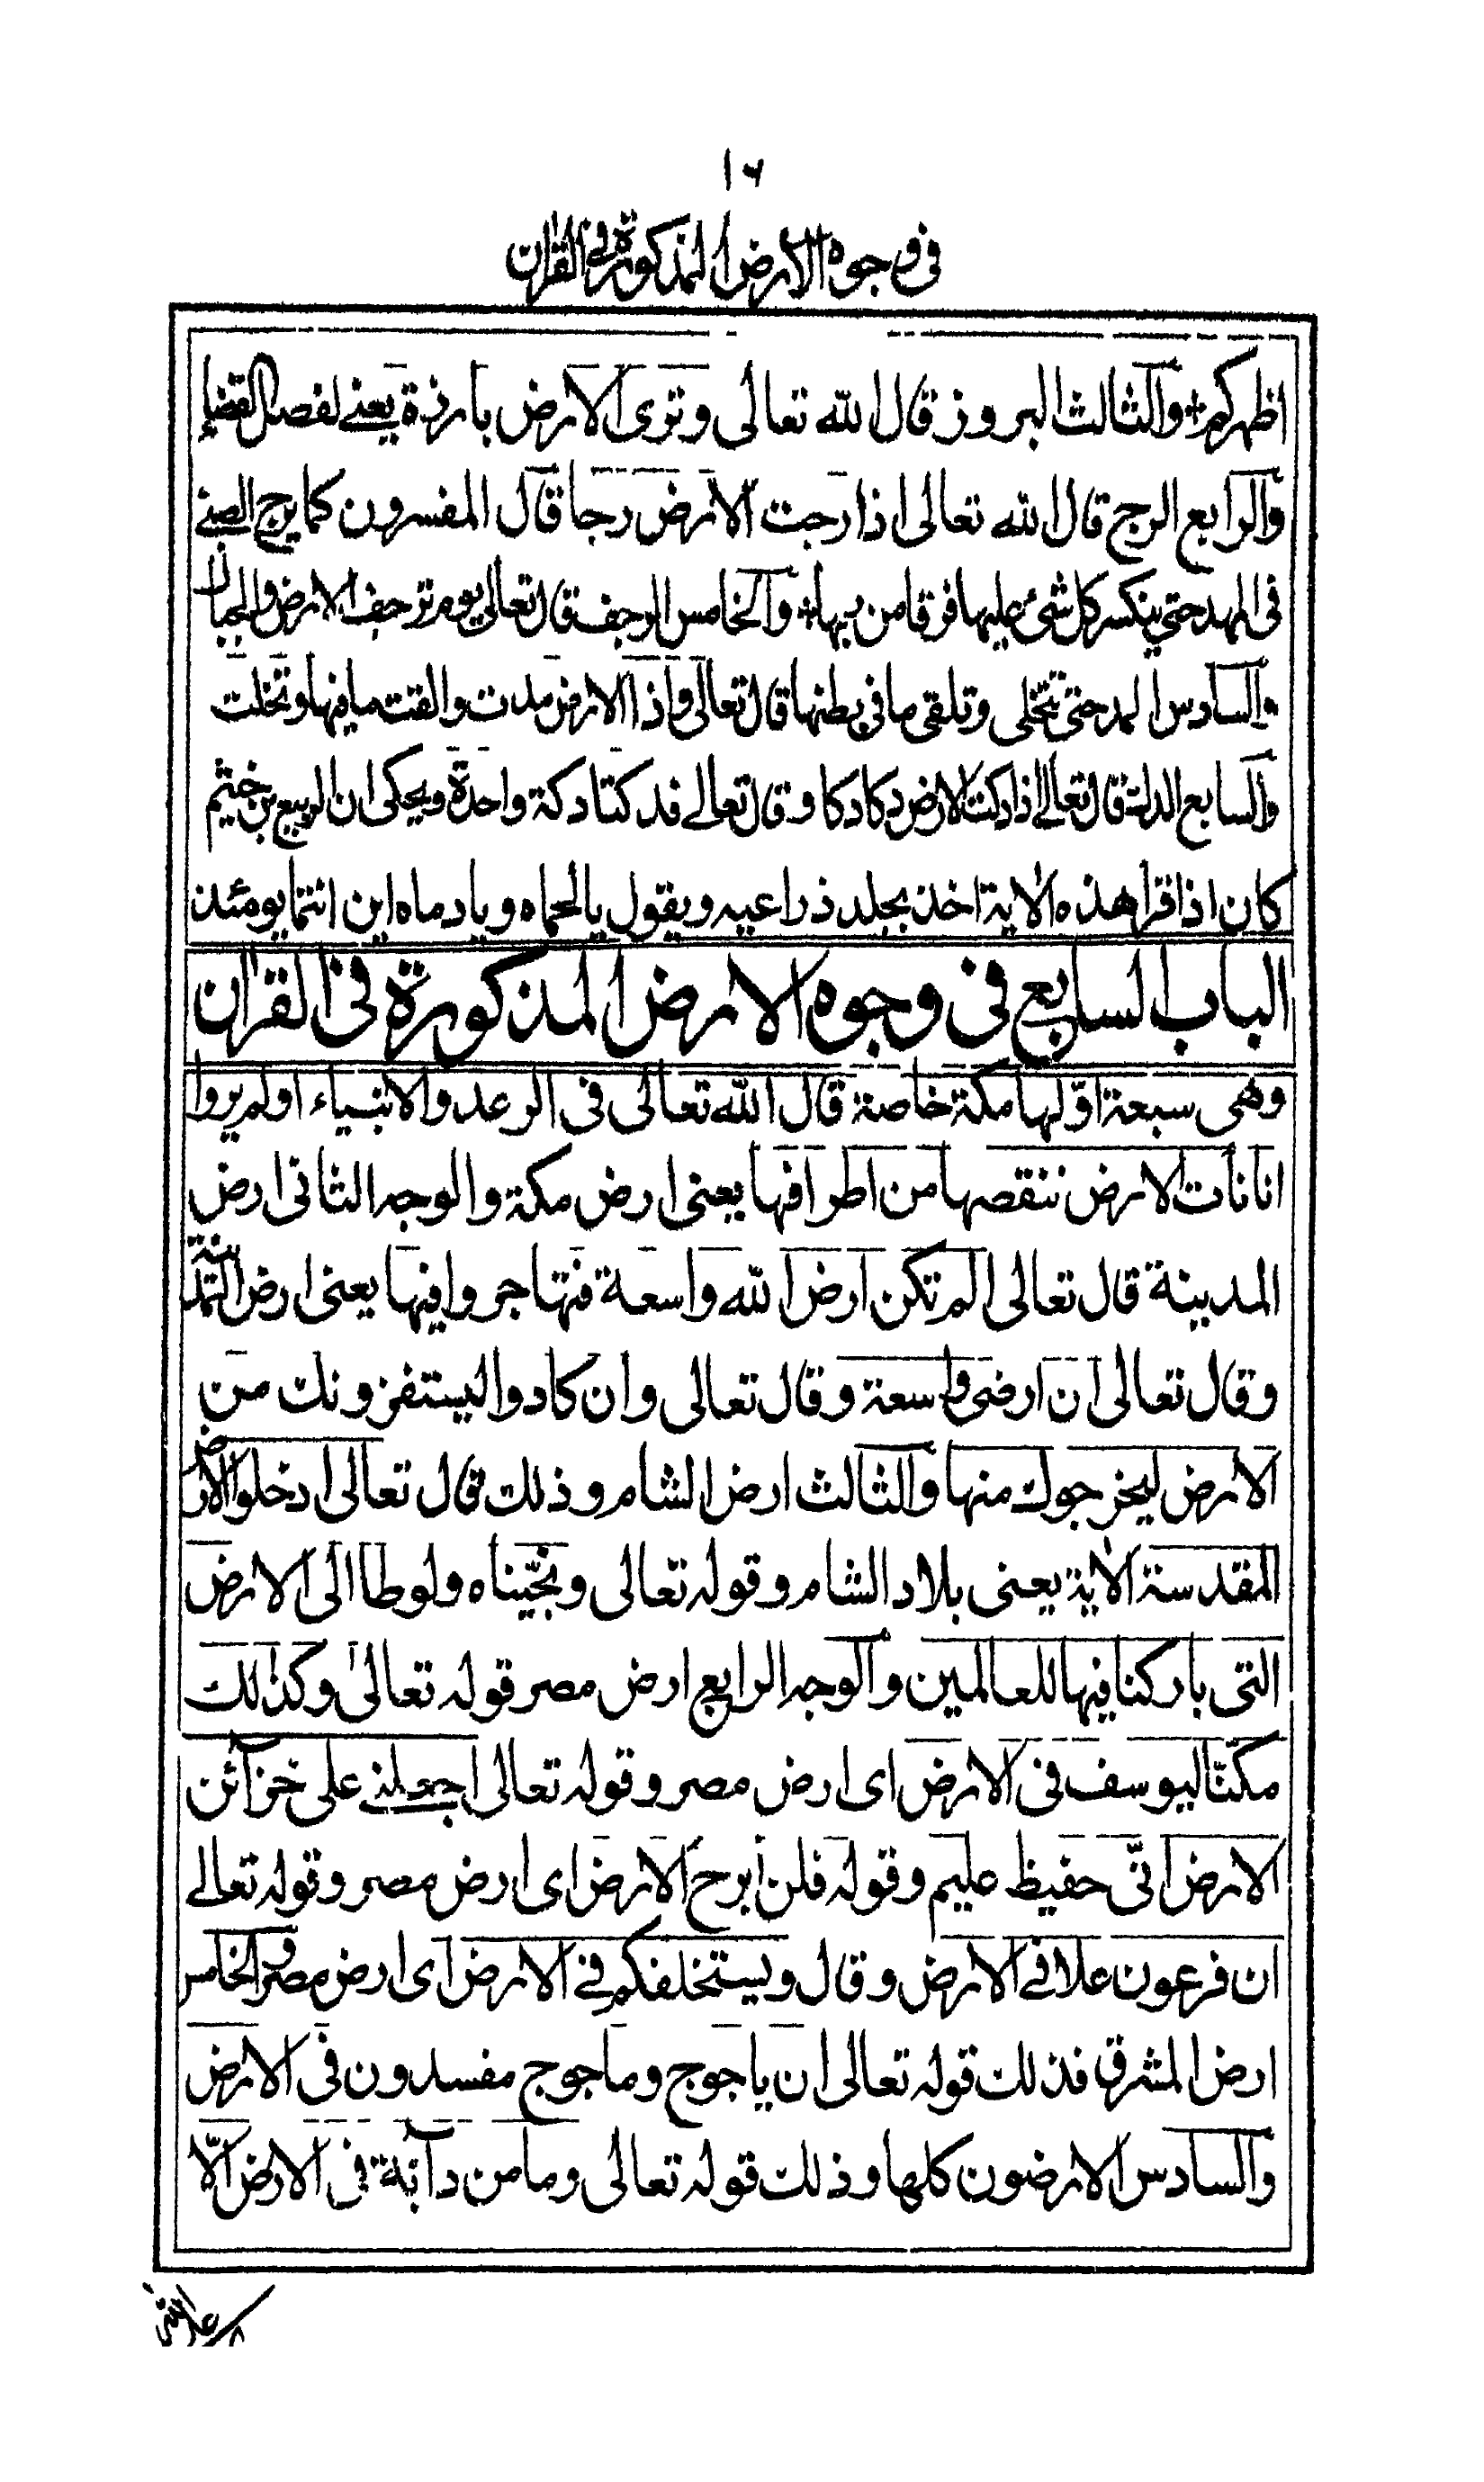 ١٦
في وجوه الارض المذكورة في القرآن
اظهركم * والثالث البروز قال الله تعالى وترى الارض بارزة يعني لفصل القضاء
والرابع الرج قال الله تعالى اذا رجت الارض رجا قال المفسرون كما يرج الصبي
في المهد حتى ينكسر كل شئ عليها فرقا من ربها * والخامس الرجف قال تعالى يوم ترجف الارض والجبال
والسادس المد حتى تتخلى وتلقى ما في بطنها قال تعالى واذا الارض مدت والقت ما فيها وتخلت
والسابع الدك قال تعالى اذا دكت الارض دكا دكا وقال تعالى فدكتا دكة واحدة ويحكى ان الربيع بن خثيم
كان اذا قرا هذه الاية اخذ بجلد ذراعيه ويقول يا لحماه ويا دماه اين انتما يومئذ
الباب السابع في وجوه الارض المذكورة في القرآن
وهي سبعة اولها مكة خاصة قال الله تعالى في الرعد والانبياء اولم يروا
انا نأت الارض ننقصها من اطرافها يعني ارض مكة والوجه الثاني ارض
المدينة قال تعالى الم تكن ارض الله واسعة فتهاجروا فيها يعني ارض المدينة
وقال تعالى ان ارضي واسعة وقال تعالى وان كادوا ليستفزونك من
الارض ليخرجوك منها والثالث ارض الشام وذلك قال تعالى ادخلوا الارض
المقدسة الآية يعني بلاد الشام وقوله تعالى ونجيناه ولوطا الى الارض
التي باركنا فيها للعالمين والوجه الرابع ارض مصر قوله تعالى وكذلك
مكنا ليوسف في الارض اي ارض مصر وقوله تعالى اجعلني على خزآئن
الارض انّي حفيظ عليم وقوله فلن أبرح الارض اي ارض مصر وقوله تعالى
ان فرعون علا في الارض وقال ويستخلفكم في الارض اي ارض مصر والخامس
ارض المشرق فذلك قوله تعالى ان ياجوج وماجوج مفسدون في الارض
والسادس الارضون كلها وذلك قوله تعالى وما من دآبة في الارض الّا